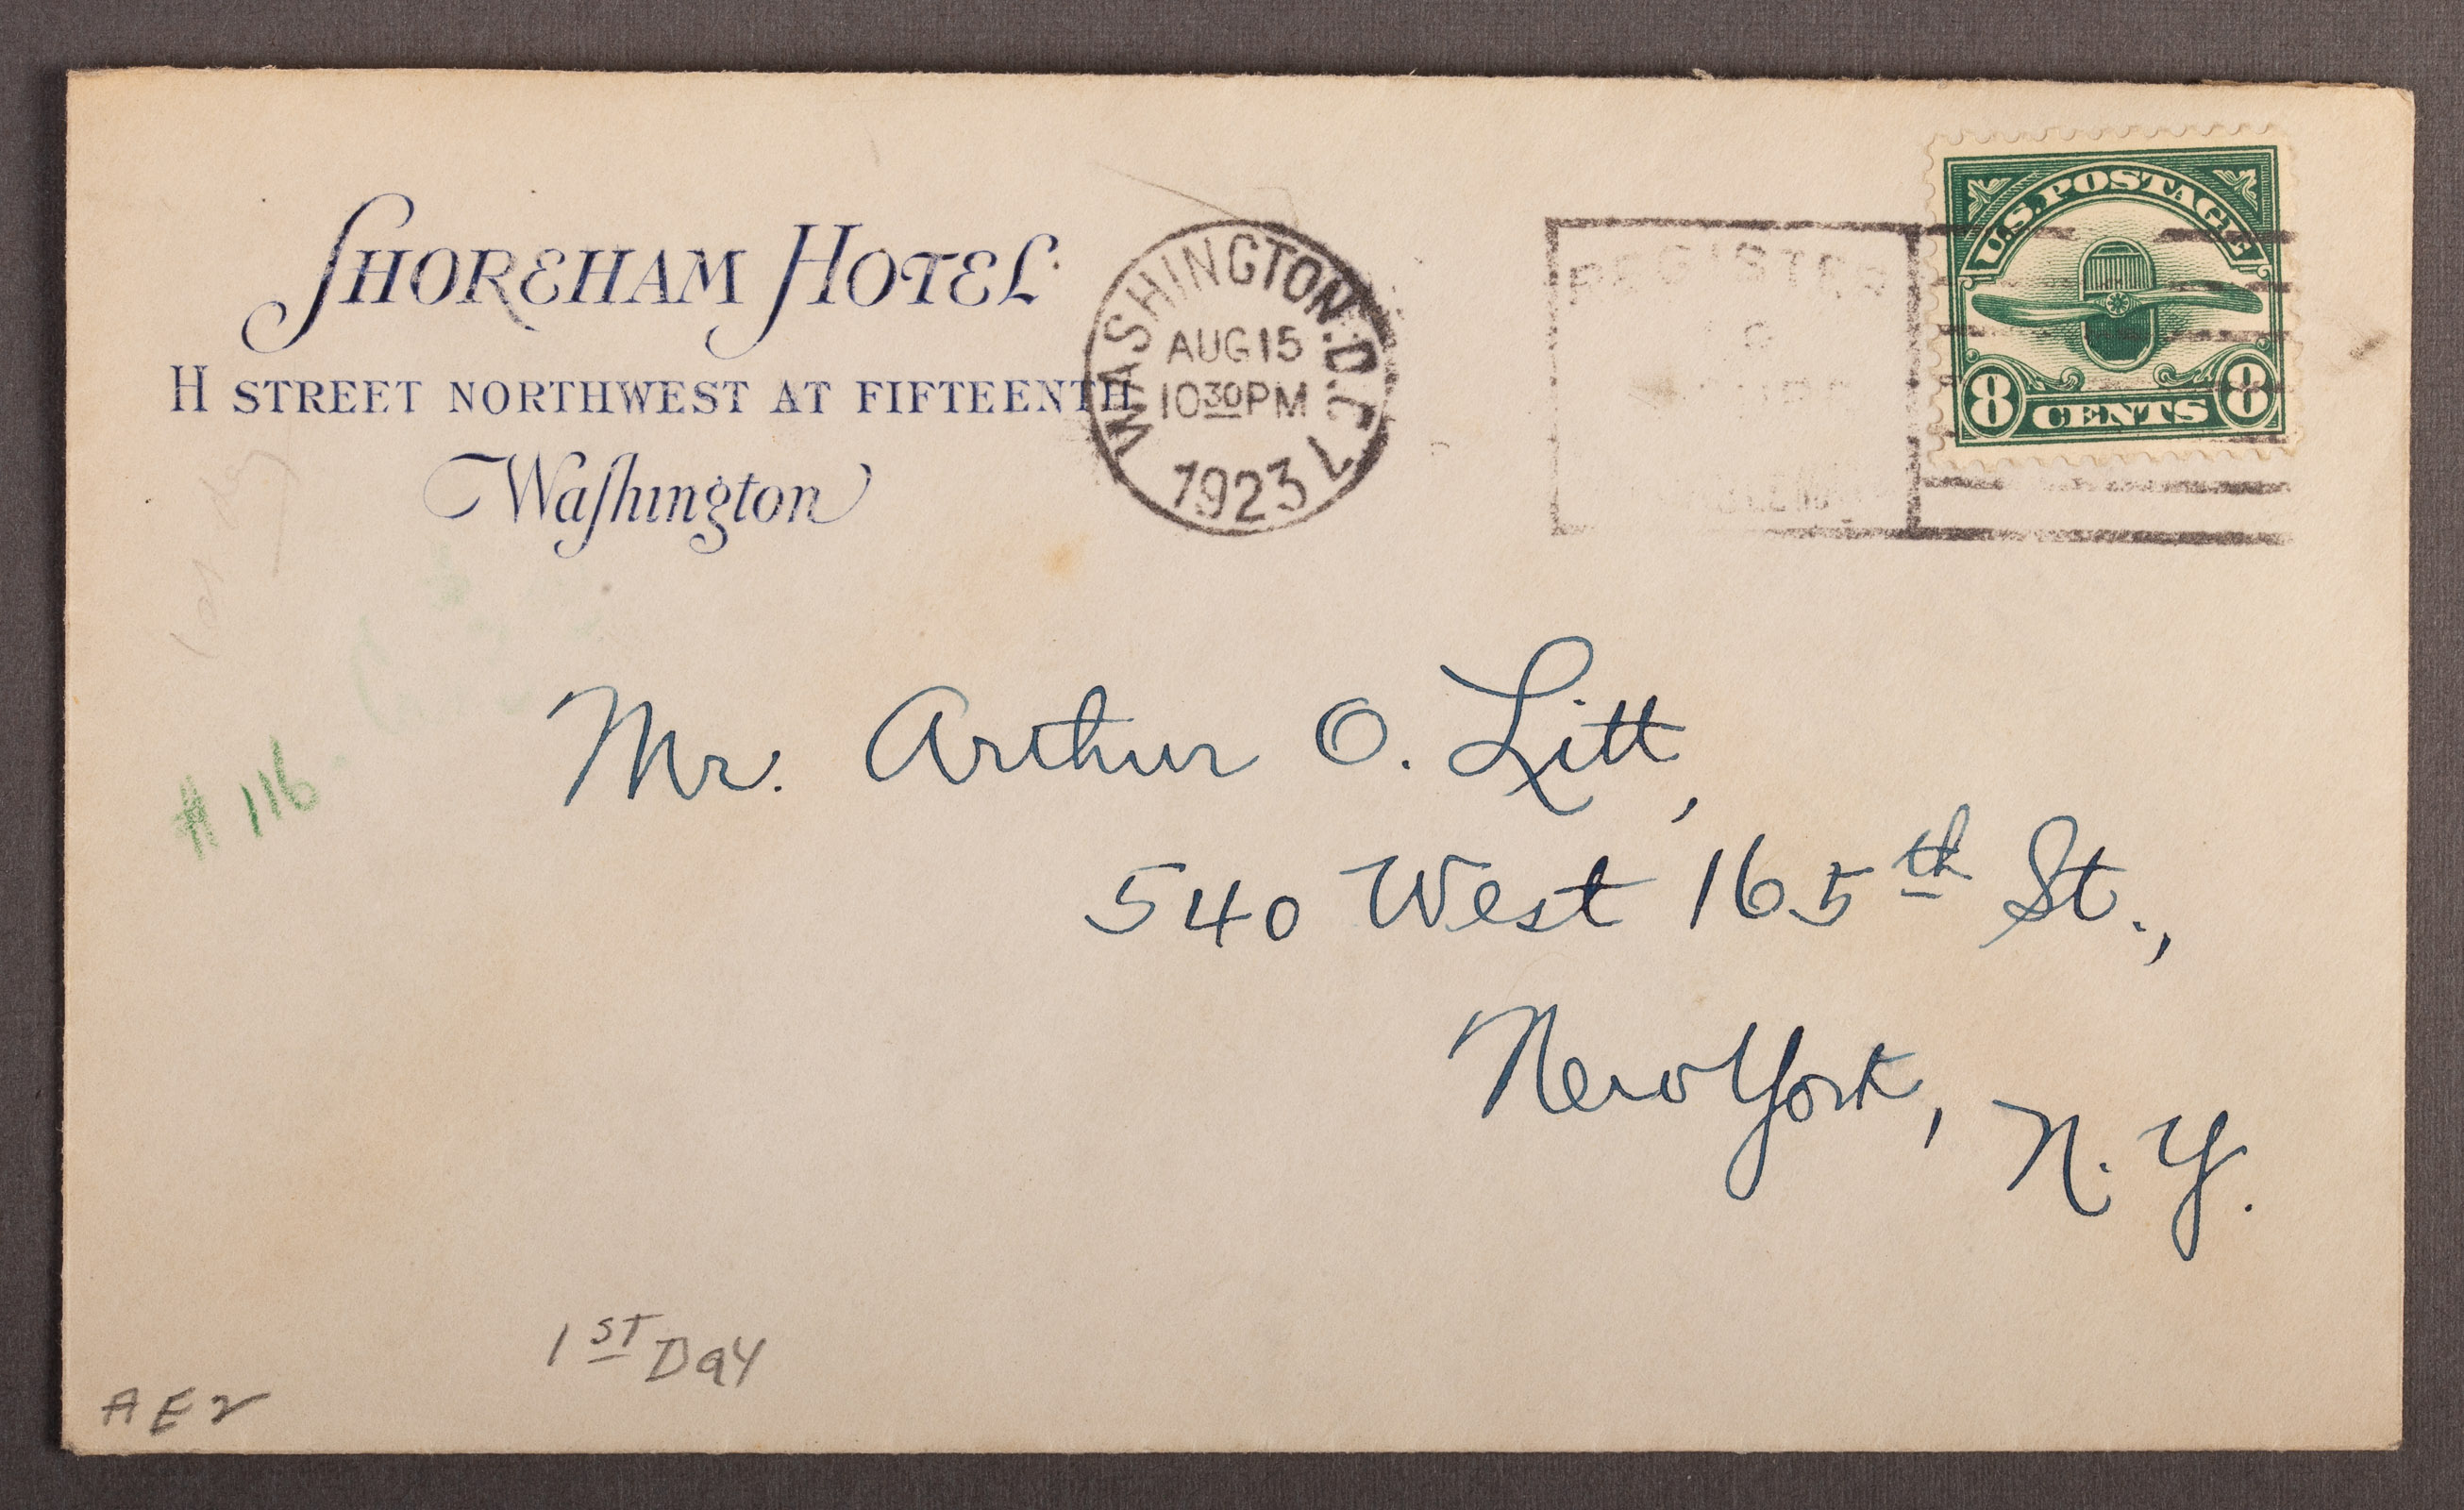 SHOREHAM HOTEL
H STREET NORTHWEST AT FIFTEENTH
Washington
WASHINGTON, D.C.
AUG 15
10 30 PM
1923
REGISTER
U.S. POSTAGE
8 CENTS 8
Mr. Arthur O. Litt,
540 West 165th St.,
New York, N. Y.
# 116
1ST Day